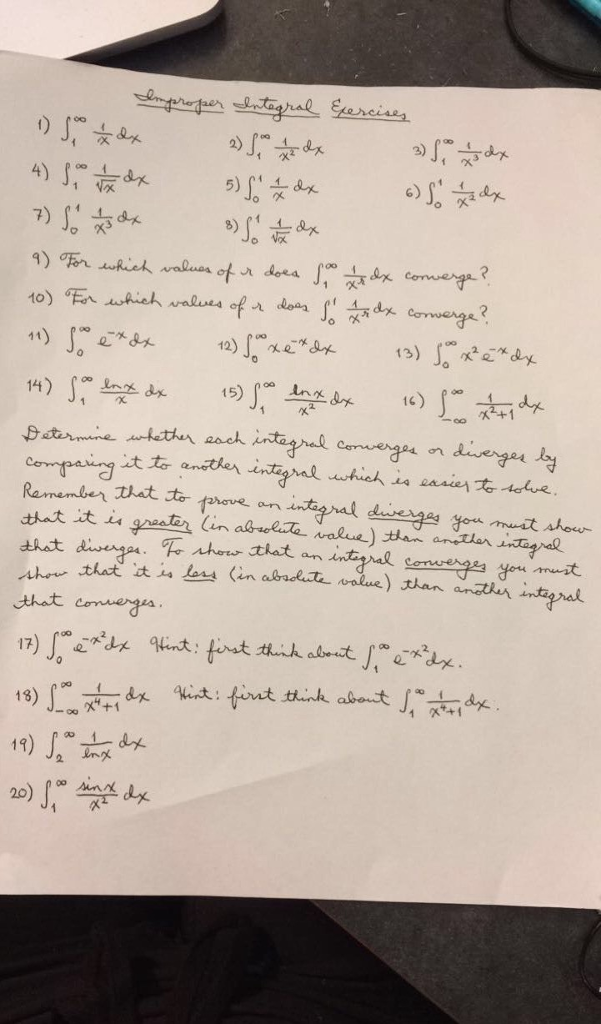 Improper Integral Exercises
1) ∫₁^∞ 1/x dx 2) ∫₁^∞ 1/x² dx 3) ∫₁^∞ 1/x³ dx
4) ∫₁^∞ 1/√x dx 5) ∫₀¹ 1/x dx 6) ∫₀¹ 1/x² dx
7) ∫₀¹ 1/x³ dx 8) ∫₀¹ 1/√x dx
9) For which values of r does ∫₁^∞ 1/xʳ dx converge?
10) For which values of r does ∫₀¹ 1/xʳ dx converge?
11) ∫₀^∞ e⁻ˣ dx 12) ∫₀^∞ xe⁻ˣ dx 13) ∫₀^∞ x²e⁻ˣ dx
14) ∫₁^∞ ln x/x dx 15) ∫₁^∞ ln x/x² dx 16) ∫₋∞^∞ 1/(x²+1) dx
Determine whether each integral converges or diverges by
comparing it to another integral which is easier to solve.
Remember that to prove an integral diverges you must show
that it is greater (in absolute value) than another integral
that diverges. To show that an integral converges you must
show that it is less (in absolute value) than another integral
that converges.
17) ∫₀^∞ e^(-x²) dx Hint: first think about ∫₁^∞ e^(-x²) dx.
18) ∫₋∞^∞ 1/(x⁴+1) dx Hint: first think about ∫₁^∞ 1/(x⁴+1) dx.
19) ∫₂^∞ 1/ln x dx
20) ∫₁^∞ sin x/x² dx